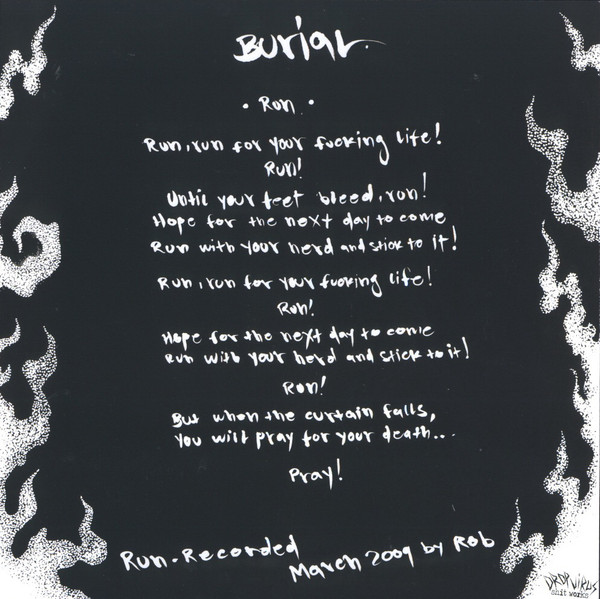 Burial.
• Run •
Run, run for your fucking life!
Run!
Until your feet bleed, run!
Hope for the next day to come
Run with your herd and stick to it!
Run, run for your fucking life!
Run!
Hope for the next day to come
Run with your herd and stick to it!
Run!
But when the curtain falls,
You will pray for your death...
Pray!
Run - Recorded
March 2009 by Rob
DROPVIRUS
shit works